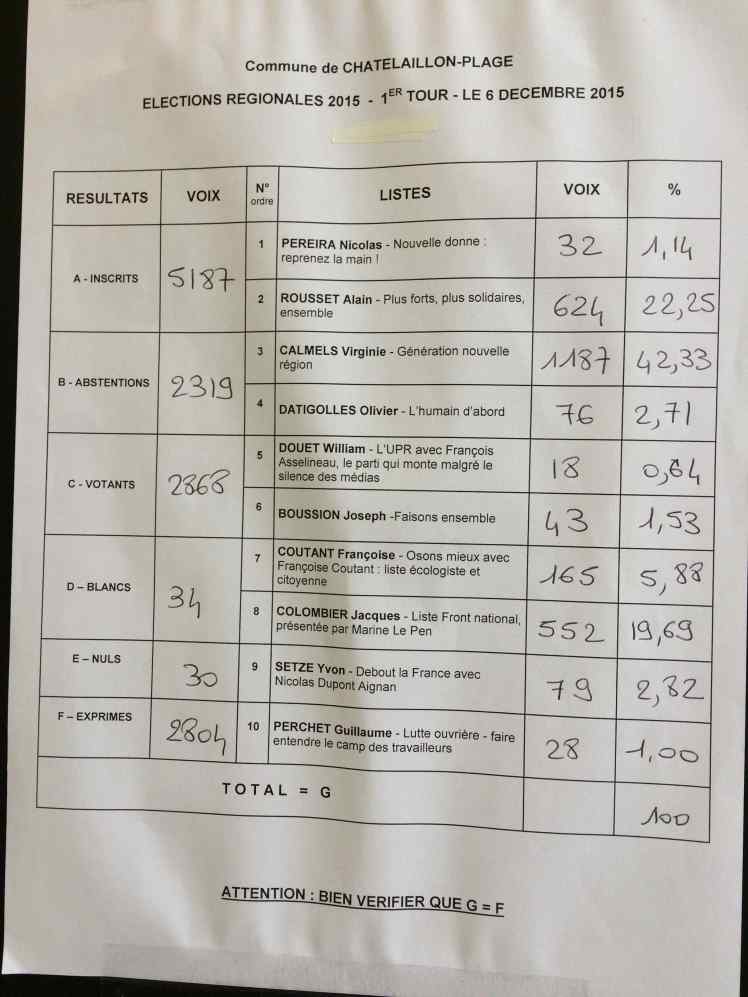 Commune de CHATELAILLON-PLAGE
ELECTIONS REGIONALES 2015 - 1ER TOUR - LE 6 DECEMBRE 2015
RESULTATS VOIX N° ordre LISTES VOIX %
A - INSCRITS 5187
1 PEREIRA Nicolas - Nouvelle donne :
reprenez la main ! 32 1,14
2 ROUSSET Alain - Plus forts, plus solidaires,
ensemble 624 22,25
B - ABSTENTIONS 2319
3 CALMELS Virginie - Génération nouvelle
région 1187 42,33
4 DATIGOLLES Olivier - L'humain d'abord 76 2,71
C - VOTANTS 2868
5 DOUET William - L'UPR avec François
Asselineau, le parti qui monte malgré le
silence des médias 18 0,64
6 BOUSSION Joseph -Faisons ensemble 43 1,53
D – BLANCS 34
7 COUTANT Françoise - Osons mieux avec
Françoise Coutant : liste écologiste et
citoyenne 165 5,88
8 COLOMBIER Jacques - Liste Front national,
présentée par Marine Le Pen 552 19,69
E – NULS 30
9 SETZE Yvon - Debout la France avec
Nicolas Dupont Aignan 79 2,82
F – EXPRIMES 2804
10 PERCHET Guillaume - Lutte ouvrière - faire
entendre le camp des travailleurs 28 1,00
TOTAL = G 100
ATTENTION : BIEN VERIFIER QUE G = F